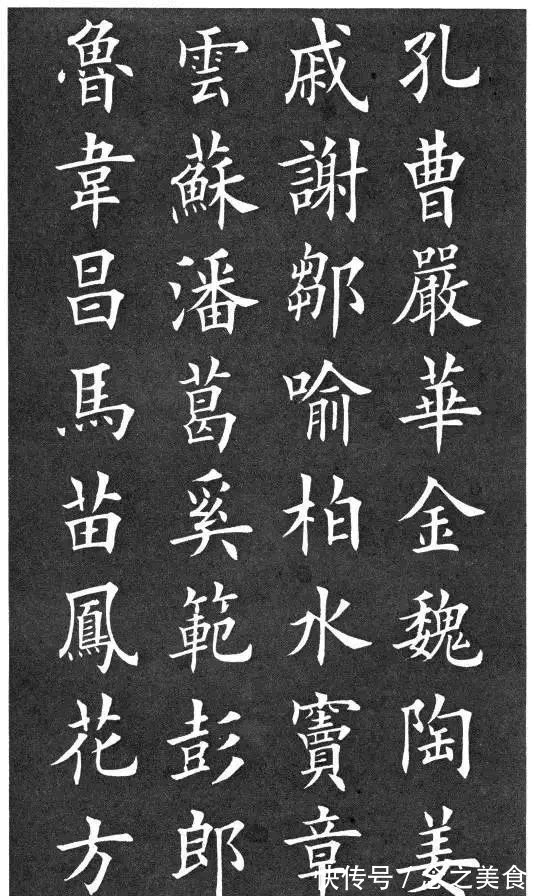 孔曹嚴華金魏陶姜
戚謝鄒喻柏水竇章
雲蘇潘葛奚範彭郎
魯韋昌馬苗鳳花方
快传号/食之美食